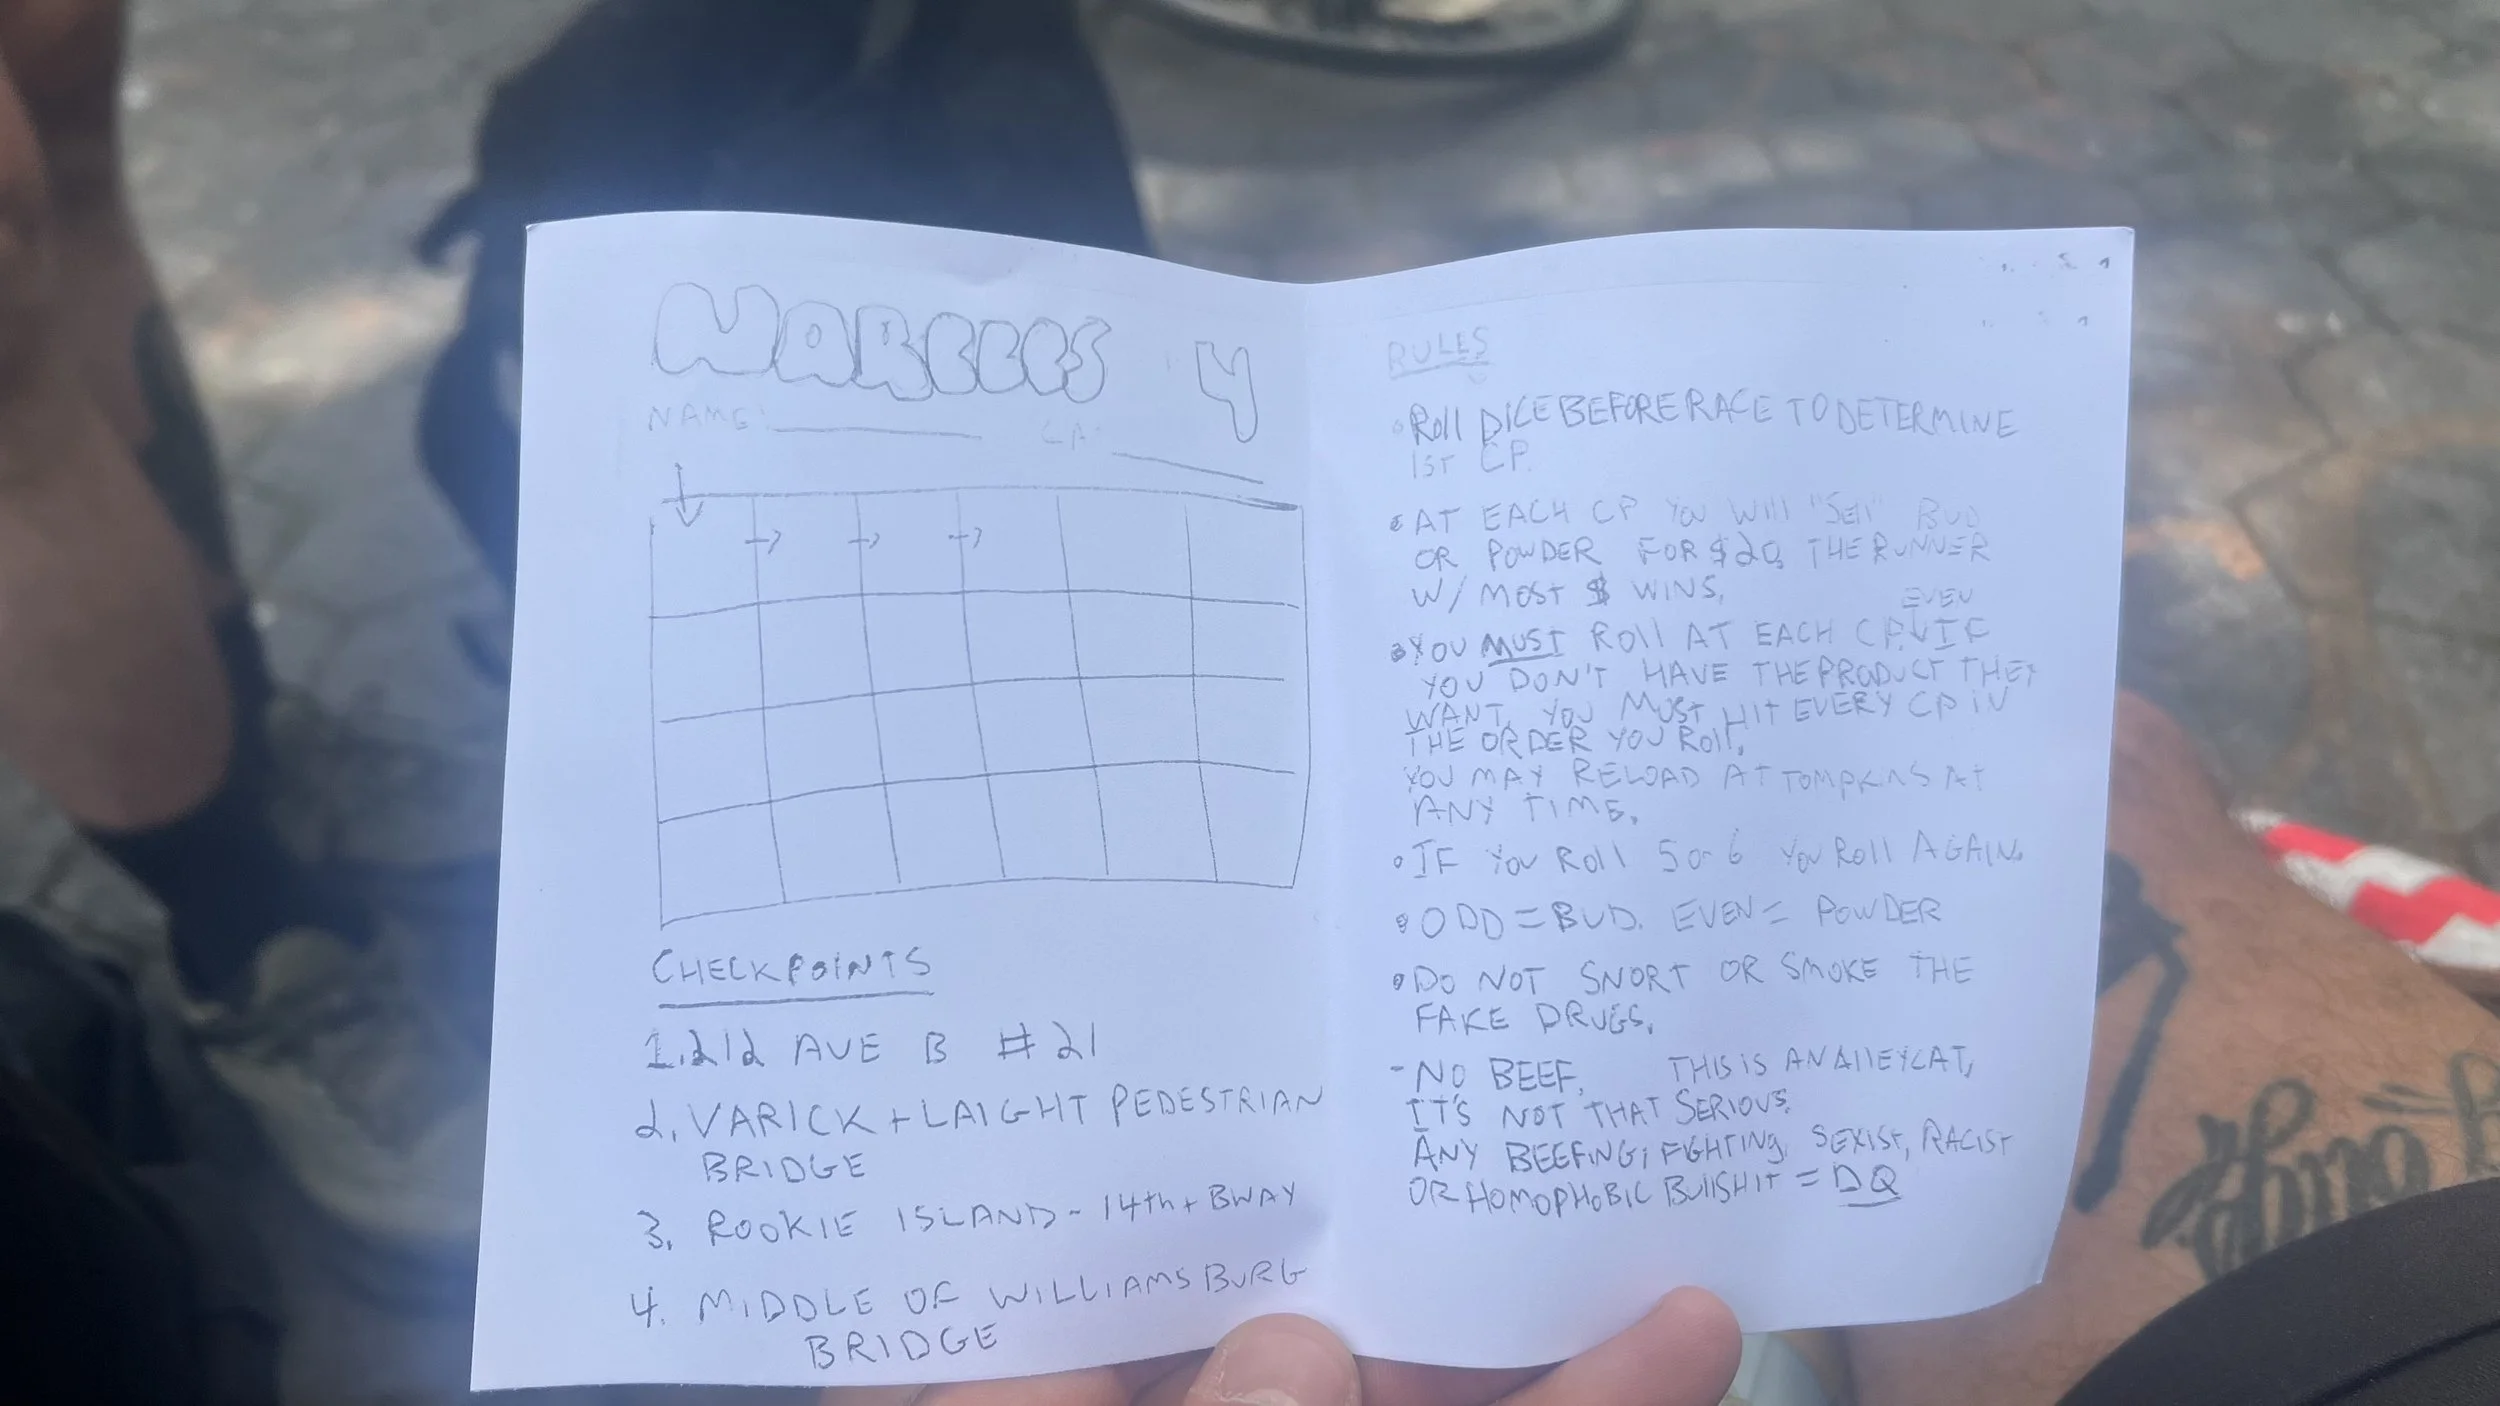 NARCCOS 4
NAME:
CHECKPOINTS
1. 212 AVE B #21
2. VARICK + LAIGHT PEDESTRIAN
BRIDGE
3. ROOKIE ISLAND - 14th + BWAY
4. MIDDLE OF WILLIAMSBURG
BRIDGE
RULES
Roll DICE BEFORE RACE TO DETERMINE
1ST CP.
AT EACH CP YOU WILL "SELL" BUD
OR POWDER FOR $20. THE RUNNER
W/ MOST $ WINS.
EVEN
YOU MUST ROLL AT EACH CP. IF
YOU DON'T HAVE THE PRODUCT THEY
WANT. YOU MUST HIT EVERY CP IN
THE ORDER YOU ROLL.
YOU MAY RELOAD AT TOMPKINS AT
ANY TIME.
IF YOU ROLL 5 or 6 YOU ROLL AGAIN.
ODD = BUD. EVEN = POWDER
DO NOT SNORT OR SMOKE THE
FAKE DRUGS.
- NO BEEF. THIS IS AN AllEYCAT,
IT'S NOT THAT SERIOUS.
ANY BEEFING, FIGHTING, SEXIST, RACIST
OR HOMOPHOBIC BULLSHIT = DQ